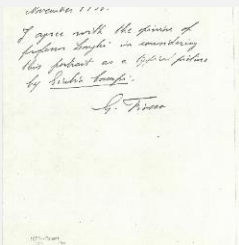 November
I agree with the opinion of
professor in considering
this portrait as a typical picture
by
G. Fiocco